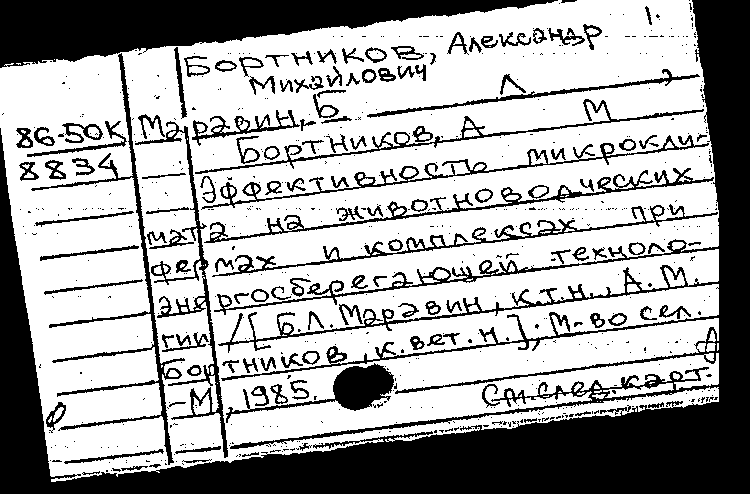 1.
Бортников, Александр
Михайлович
86-50К Маравин, Б. Л.,
8834 Бортников, А М
Эффективность микрокли-
мата на животноводческих
фермах и комплексах при
энергосберегающей техноло-
гии /[Б.Л. Маравин, к.т.н., А.М.
Бортников, к.вет.н.]; М-во сел.
-М., 1985.
См. след. карт.